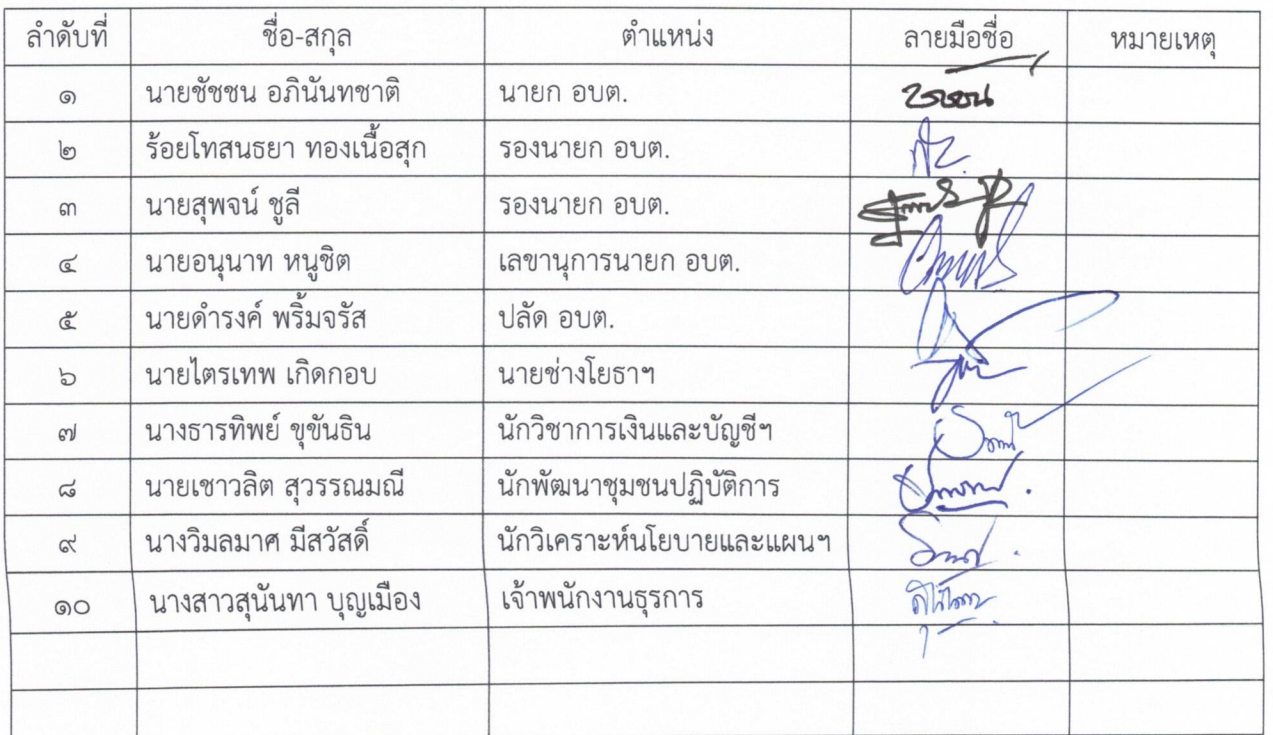 ลำดับที่ ชื่อ-สกุล ตำแหน่ง ลายมือชื่อ หมายเหตุ
๑ นายชัชชน อภินันทชาติ นายก อบต.
๒ ร้อยโทสนธยา ทองเนื้อสุก รองนายก อบต.
๓ นายสุพจน์ ชูลี รองนายก อบต.
๔ นายอนุนาท หนูชิต เลขานุการนายก อบต.
๕ นายดำรงค์ พริ้มจรัส ปลัด อบต.
๖ นายไตรเทพ เกิดกอบ นายช่างโยธาฯ
๗ นางธารทิพย์ ขุขันธิน นักวิชาการเงินและบัญชีฯ
๘ นายเชาวลิต สุวรรณมณี นักพัฒนาชุมชนปฏิบัติการ
๙ นางวิมลมาศ มีสวัสดิ์ นักวิเคราะห์นโยบายและแผนฯ
๑๐ นางสาวสุนันทา บุญเมือง เจ้าพนักงานธุรการ